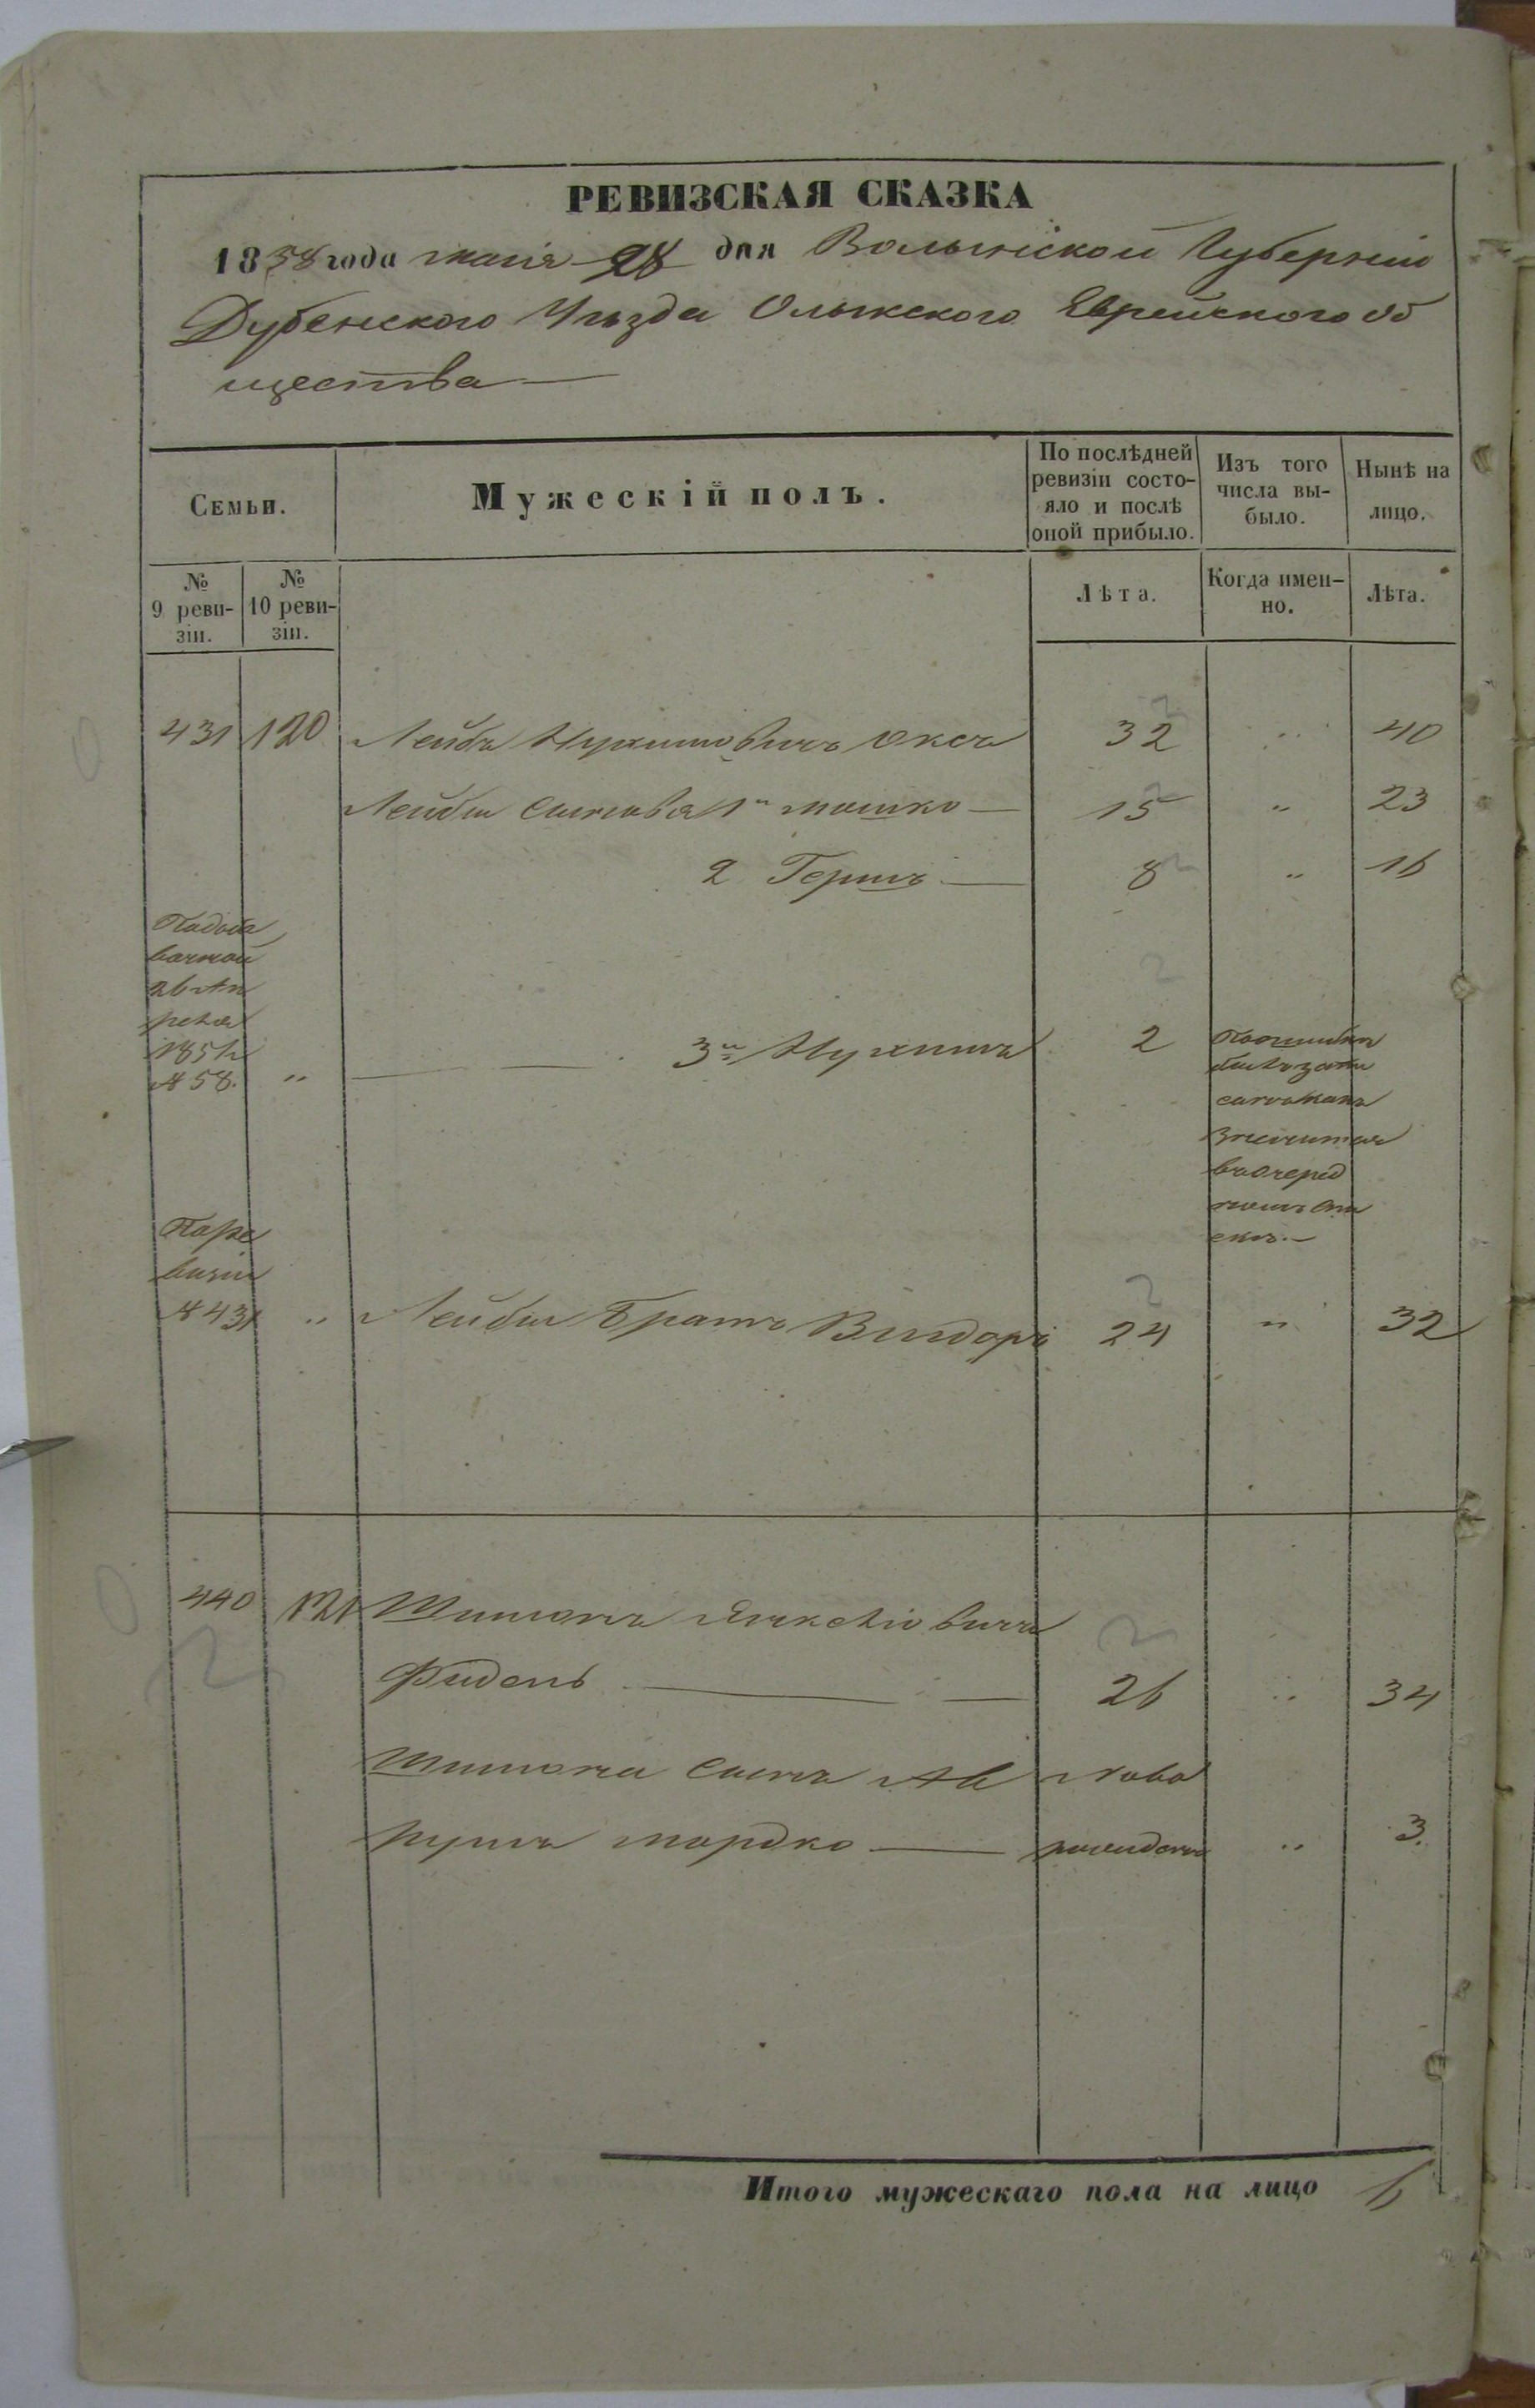 РЕВИЗСКАЯ СКАЗКА
1858 года маія 28 дня Волынской Губерніи
Дубенского Уѣзда Олыкского Еврейского об
щества —
Семьи.
Мужескій полъ.
По послѣдней
ревизіи состо-
яло и послѣ
оной прибыло.
Изъ того
числа вы-
было.
Нынѣ на
лицо.
№
9 реви-
зіи.
№
10 реви-
зіи.
Лѣта.
Когда имен-
но.
Лѣта.
431 120 Лейба Нухимовичъ Оксъ 32 „ 40
Лейбы сыновья 1й Мошко — 15 „ 23
2 Гершъ — 8 „ 16
вачной
26 Ап
реля
1851
№ 58. „ — — 3й Нухимъ 2 По ошибке
былъ запи
санъ
значится
въ очеред
номъ спи
скѣ. —
По ре
визіи
№ 431 „ Лейбы братъ 24 „ 32
440 121 Шимонъ Янкеліовичъ
Фидель — — 26 „ 34
Шимона сынъ Ав ново
румъ Мордко — рожденъ „ 3.
Итого мужескаго пола на лицо 6